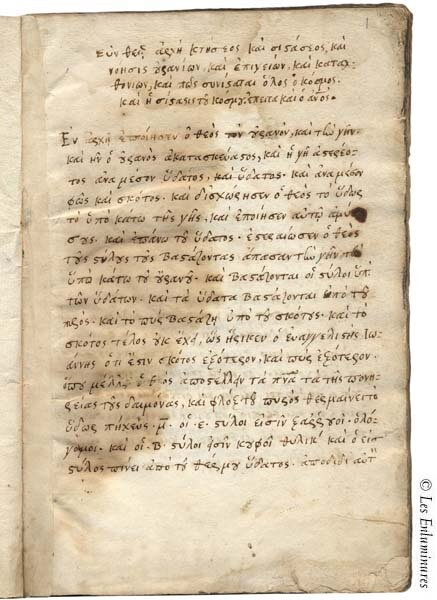 ἀρχὴ κτήσεος καὶ συστάσεος, καὶ
νοησις οὐρανίων, καὶ ἐπιγείων, καὶ καταχ
θονίων, καὶ πῶς συνίσταται ὁ λος ὁ κοσμος.
καὶ ἡ σύστασις τοῦ κοσμου, ἔπειτα καὶ ὁ
Εν ἀρχῇ ἐποίησεν ὁ θεὸς τὸν οὐρανὸν, καὶ τὴν γῆν.
καὶ ἦν ὁ οὐρανὸς ἀκατασκέυαστος, καὶ ἡ γῆ
ἀνα μεσον ὕδατος, καὶ ὕδατος. καὶ ἀνα μέσον
φῶς καὶ σκότος. καὶ διεχώρησεν ὁ θεὸς τὸ ὕδωρ
τὸ ὑπὸ κάτω τῆς γῆς, καὶ ἐποίησεν αὐτῶ ἀβύ
σους. καὶ ἐπάνω τοῦ ὕδατος. ἐστερέωσεν ὁ θεὸς
τοὺς στύλους τοὺς βαστάζοντας ἅπασαν τὴν γῆν
ὑπὸ κάτω τοῦ οὐρανοῦ. καὶ βαστάζονται οἱ στύλοι ὑπὸ
τῶν ὑδάτων. καὶ τὰ ὕδατα βαστάζονται ὑπὸ τοῦ
πυρός. καὶ τὸ πῦρ βαστάζη ὑπὸ τοῦ σκότους. καὶ τὸ
σκότος τέλος οὐκ ἔχει, ὡς ὁ εὐαγγελιστὴς Ἰω
άννης ὅτι ἔστιν σκότος ἐξότερον, καὶ πῦρ ἐξότερον.
ὅπου μέλλει ὁ θεὸς ἀποστέλλειν τὰ πνα τὰ τῆς πονη
ρείας τοὺς δαιμόνας, καὶ φλὸξ τοῦ πυρὸς θερμαίνει τὸ
ὕδωρ πήχεως. μ. οἱ. ε. στύλοι εἰσὶν
καὶ οἱ. β. στύλοι ἠσὶν κυφοὶ καὶ ὁ εἷς
στύλος πίνει ἀπὸ τοῦ θερμοῦ ὕδατος.
© Les Enluminures